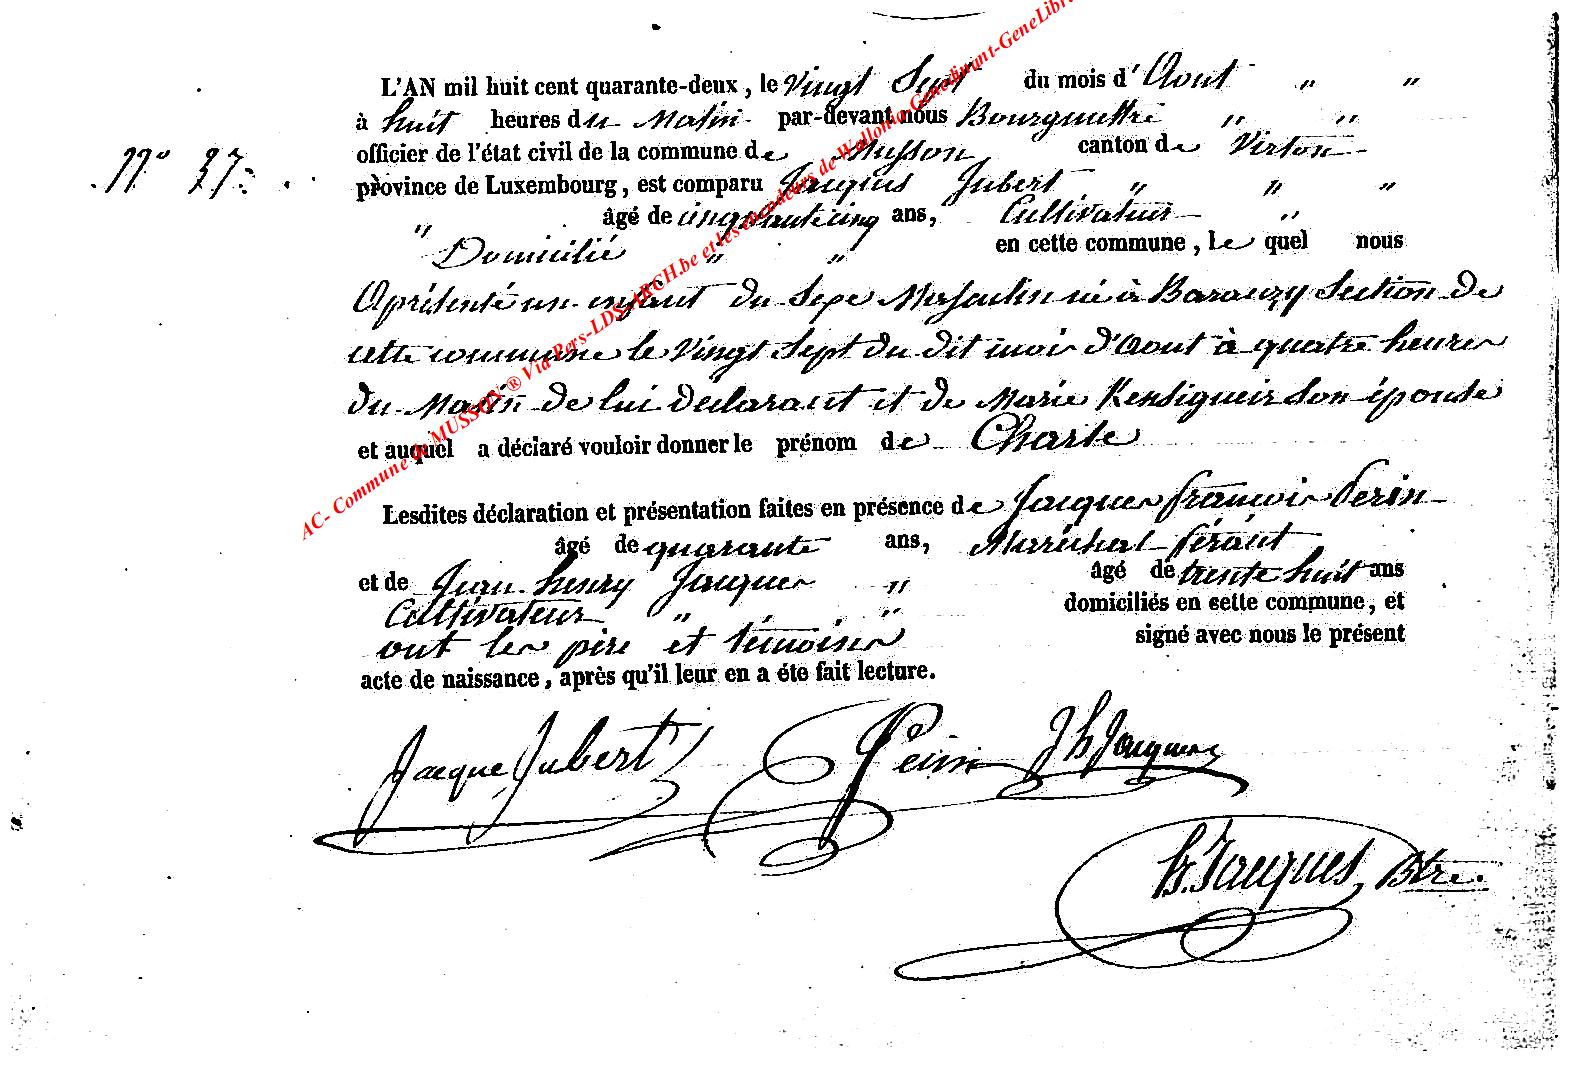 L'AN mil huit cent quarante-deux, le Vingt Sept du mois d'Aout " "
à huit heures du Matin par-devant nous Bourguettre " "
officier de l'état civil de la commune de Musson canton de Virton
N° 27: province de Luxembourg, est comparu Jacques Jubert " " "
" âgé de cinquantecinq ans, Cultivateur "
Domicilié " " en cette commune, le quel nous
A présenté un enfant du Sexe Masculin né à Baranzy Section de
cette commune le Vingt Sept du dit mois d'Aout à quatre heures
du Matin de lui déclarant et de Marie Kensigueir Son épouse
et auquel a déclaré vouloir donner le prénom de Charle
Lesdites déclaration et présentation faites en présence de Jacques françois Perin
âgé de quarante ans, Maréchal férant
et de Jean henry Jacques " âgé de trente huit ans
Cultivateur " " " domiciliés en cette commune, et
ont les père et témoins signé avec nous le présent
acte de naissance, après qu'il leur en a éte fait lecture.
Jacque Jubert Perin J h Jacques
h. Jacques, Btre.
AC- Commune de MUSSON ® Via Pers-LDS-ARCH.be et les encodeurs de Wallonia-Genedinant-GeneLibr